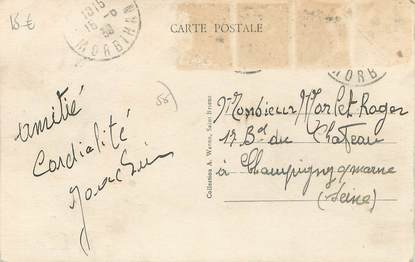 15 €
1315
15 -6
38
MORBIHAN
CARTE POSTALE
MORB
58
Amitié
Cordialité
Collection A. Waron, Saint-Brieuc
Monsieur Morlet Roger
17 Bd du Chateau
à Champigny s/marne
(Seine)